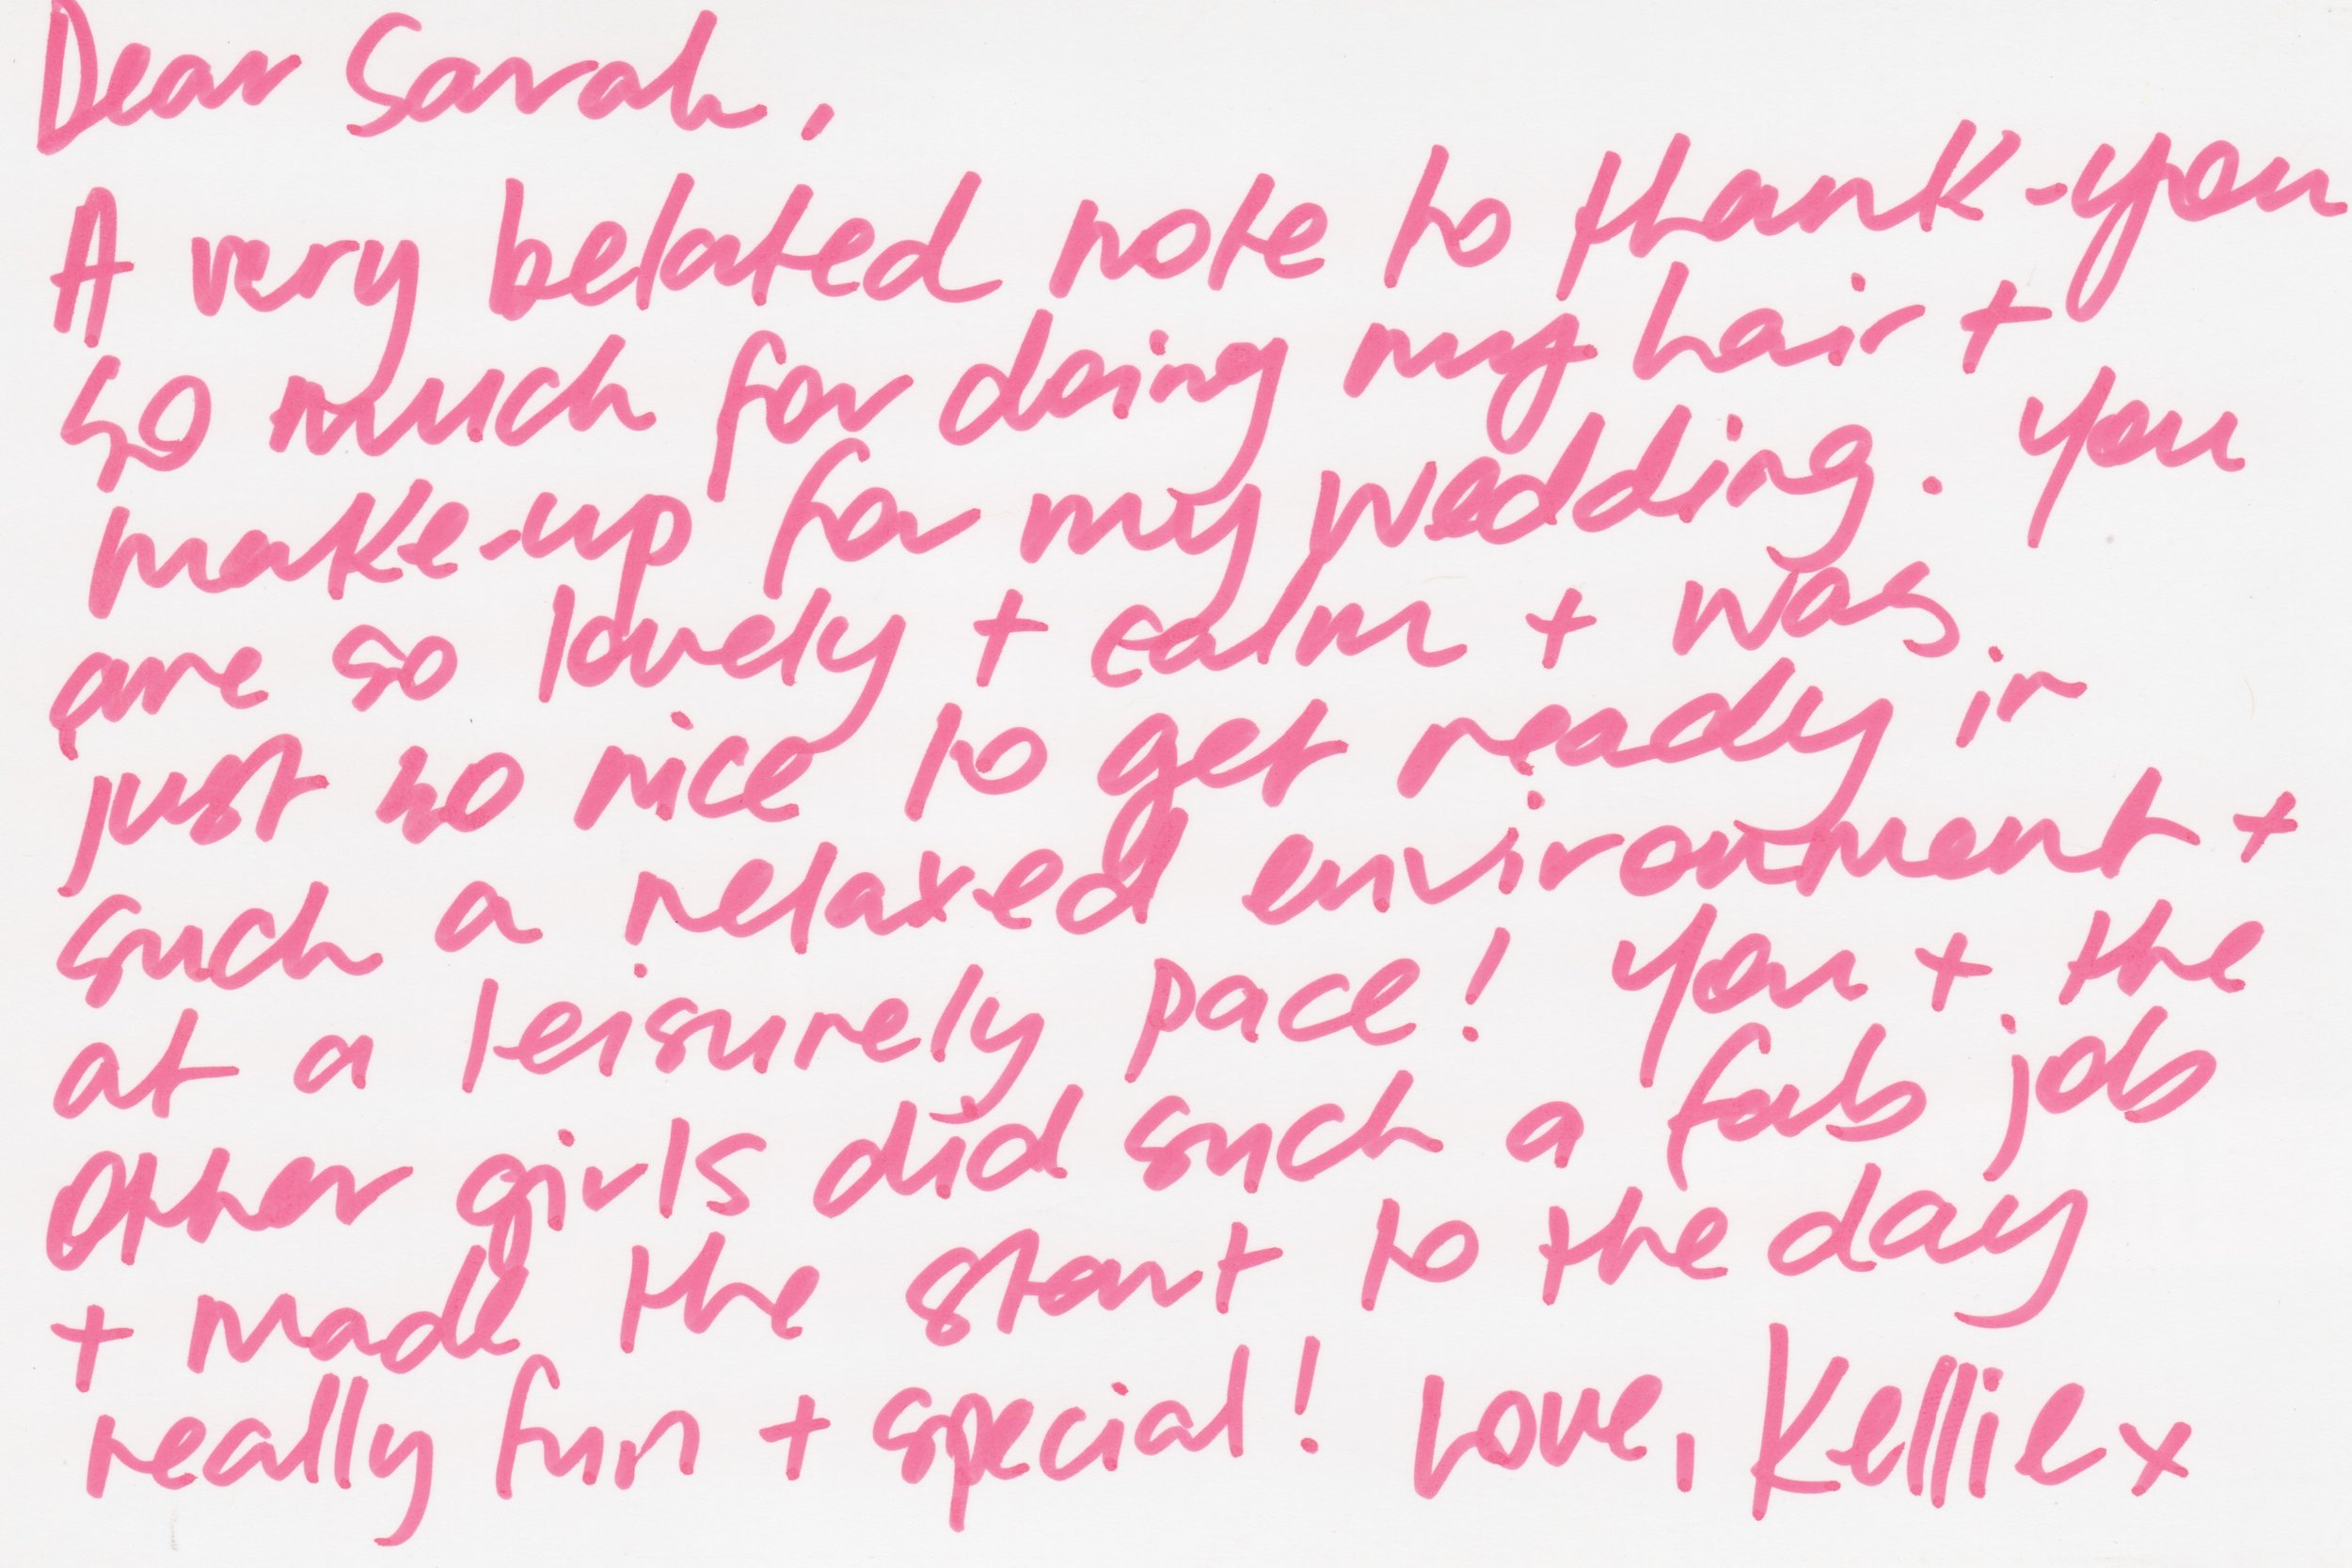 Dear Sarah,
A very belated note to thank-you
so much for doing my hair +
make-up for my wedding. You
are so lovely + calm + was
just so nice to get ready in
such a relaxed environment +
at a leisurely pace! You + the
other girls did such a fab job
+ made the start to the day
really fun + special! Love, Kellie x